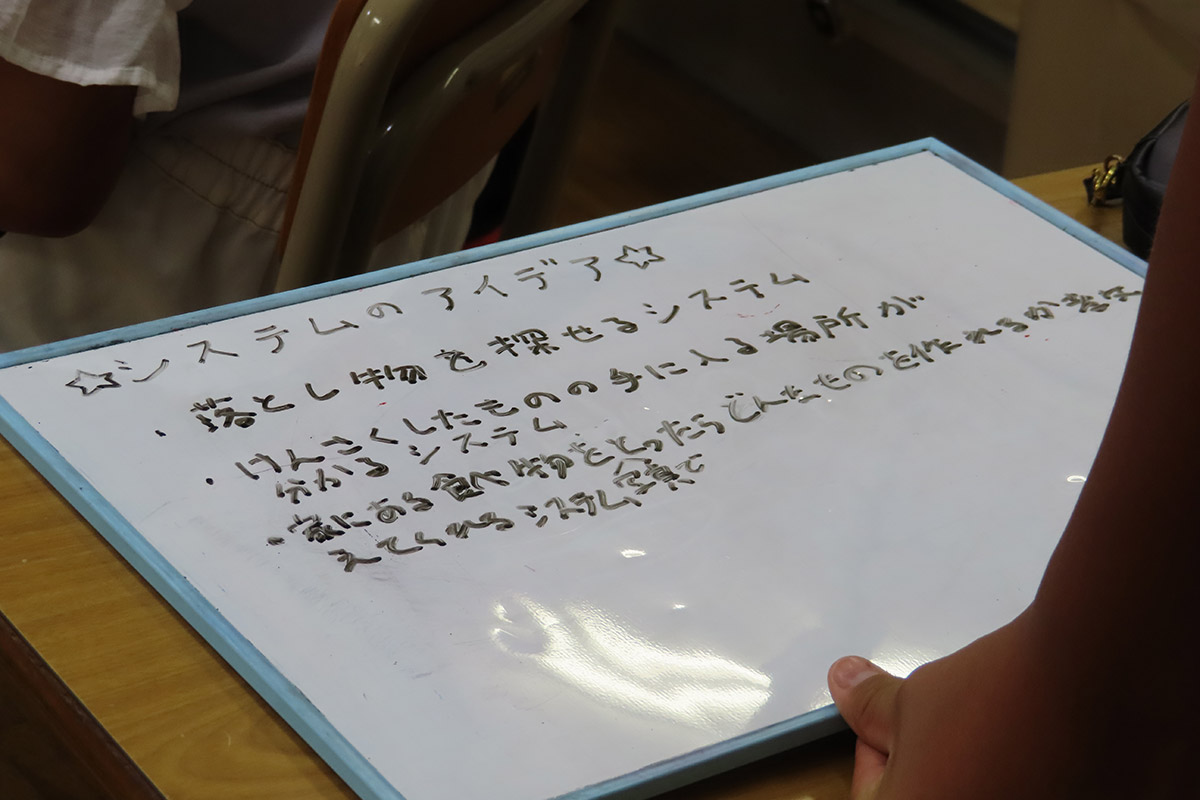 ☆システムのアイデア☆
・落とし物を探せるシステム
・けんさくしたものの手に入る場所が
分かるシステム
・家にある食べ物をとったらどんなものを作れるか考
えてくれるシステム
写真で